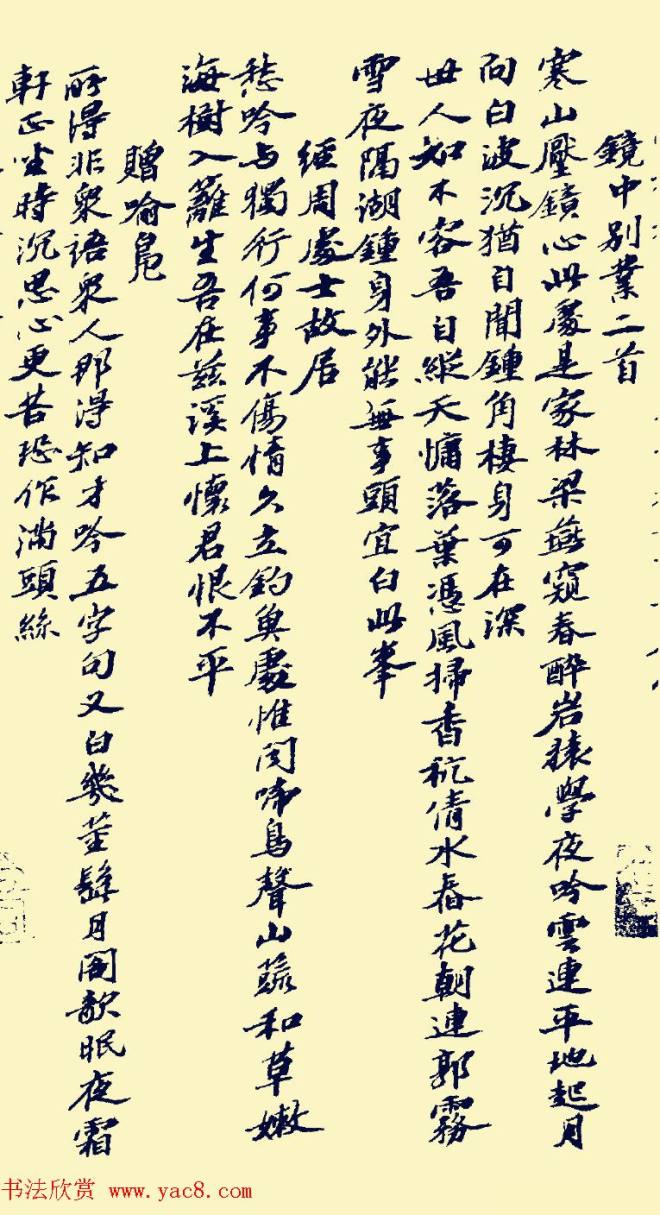 鏡中別業二首
寒山壓鏡心此處是家林梁燕窺春醉岩猿學夜吟雲連平地起月
向白波沉猶自聞鍾角棲身可在深
世人如不容吾自縱天慵落葉憑風掃香秔倩水舂花朝連郭霧
雪夜隔湖鍾身外能無事頭宜白此峯
經周處士故居
愁吟与獨行何事不傷情久立釣魚處惟聞啼鳥聲山蔬和草嫩
海樹入籬生吾在茲溪上懷君恨不平
贈喻鳧
所得非衆語衆人那得知才吟五字句又白幾莖髭月閣欹眠夜霜
軒正坐時沉思心更苦恐作滿頭絲
书法欣赏 www.yac8.com